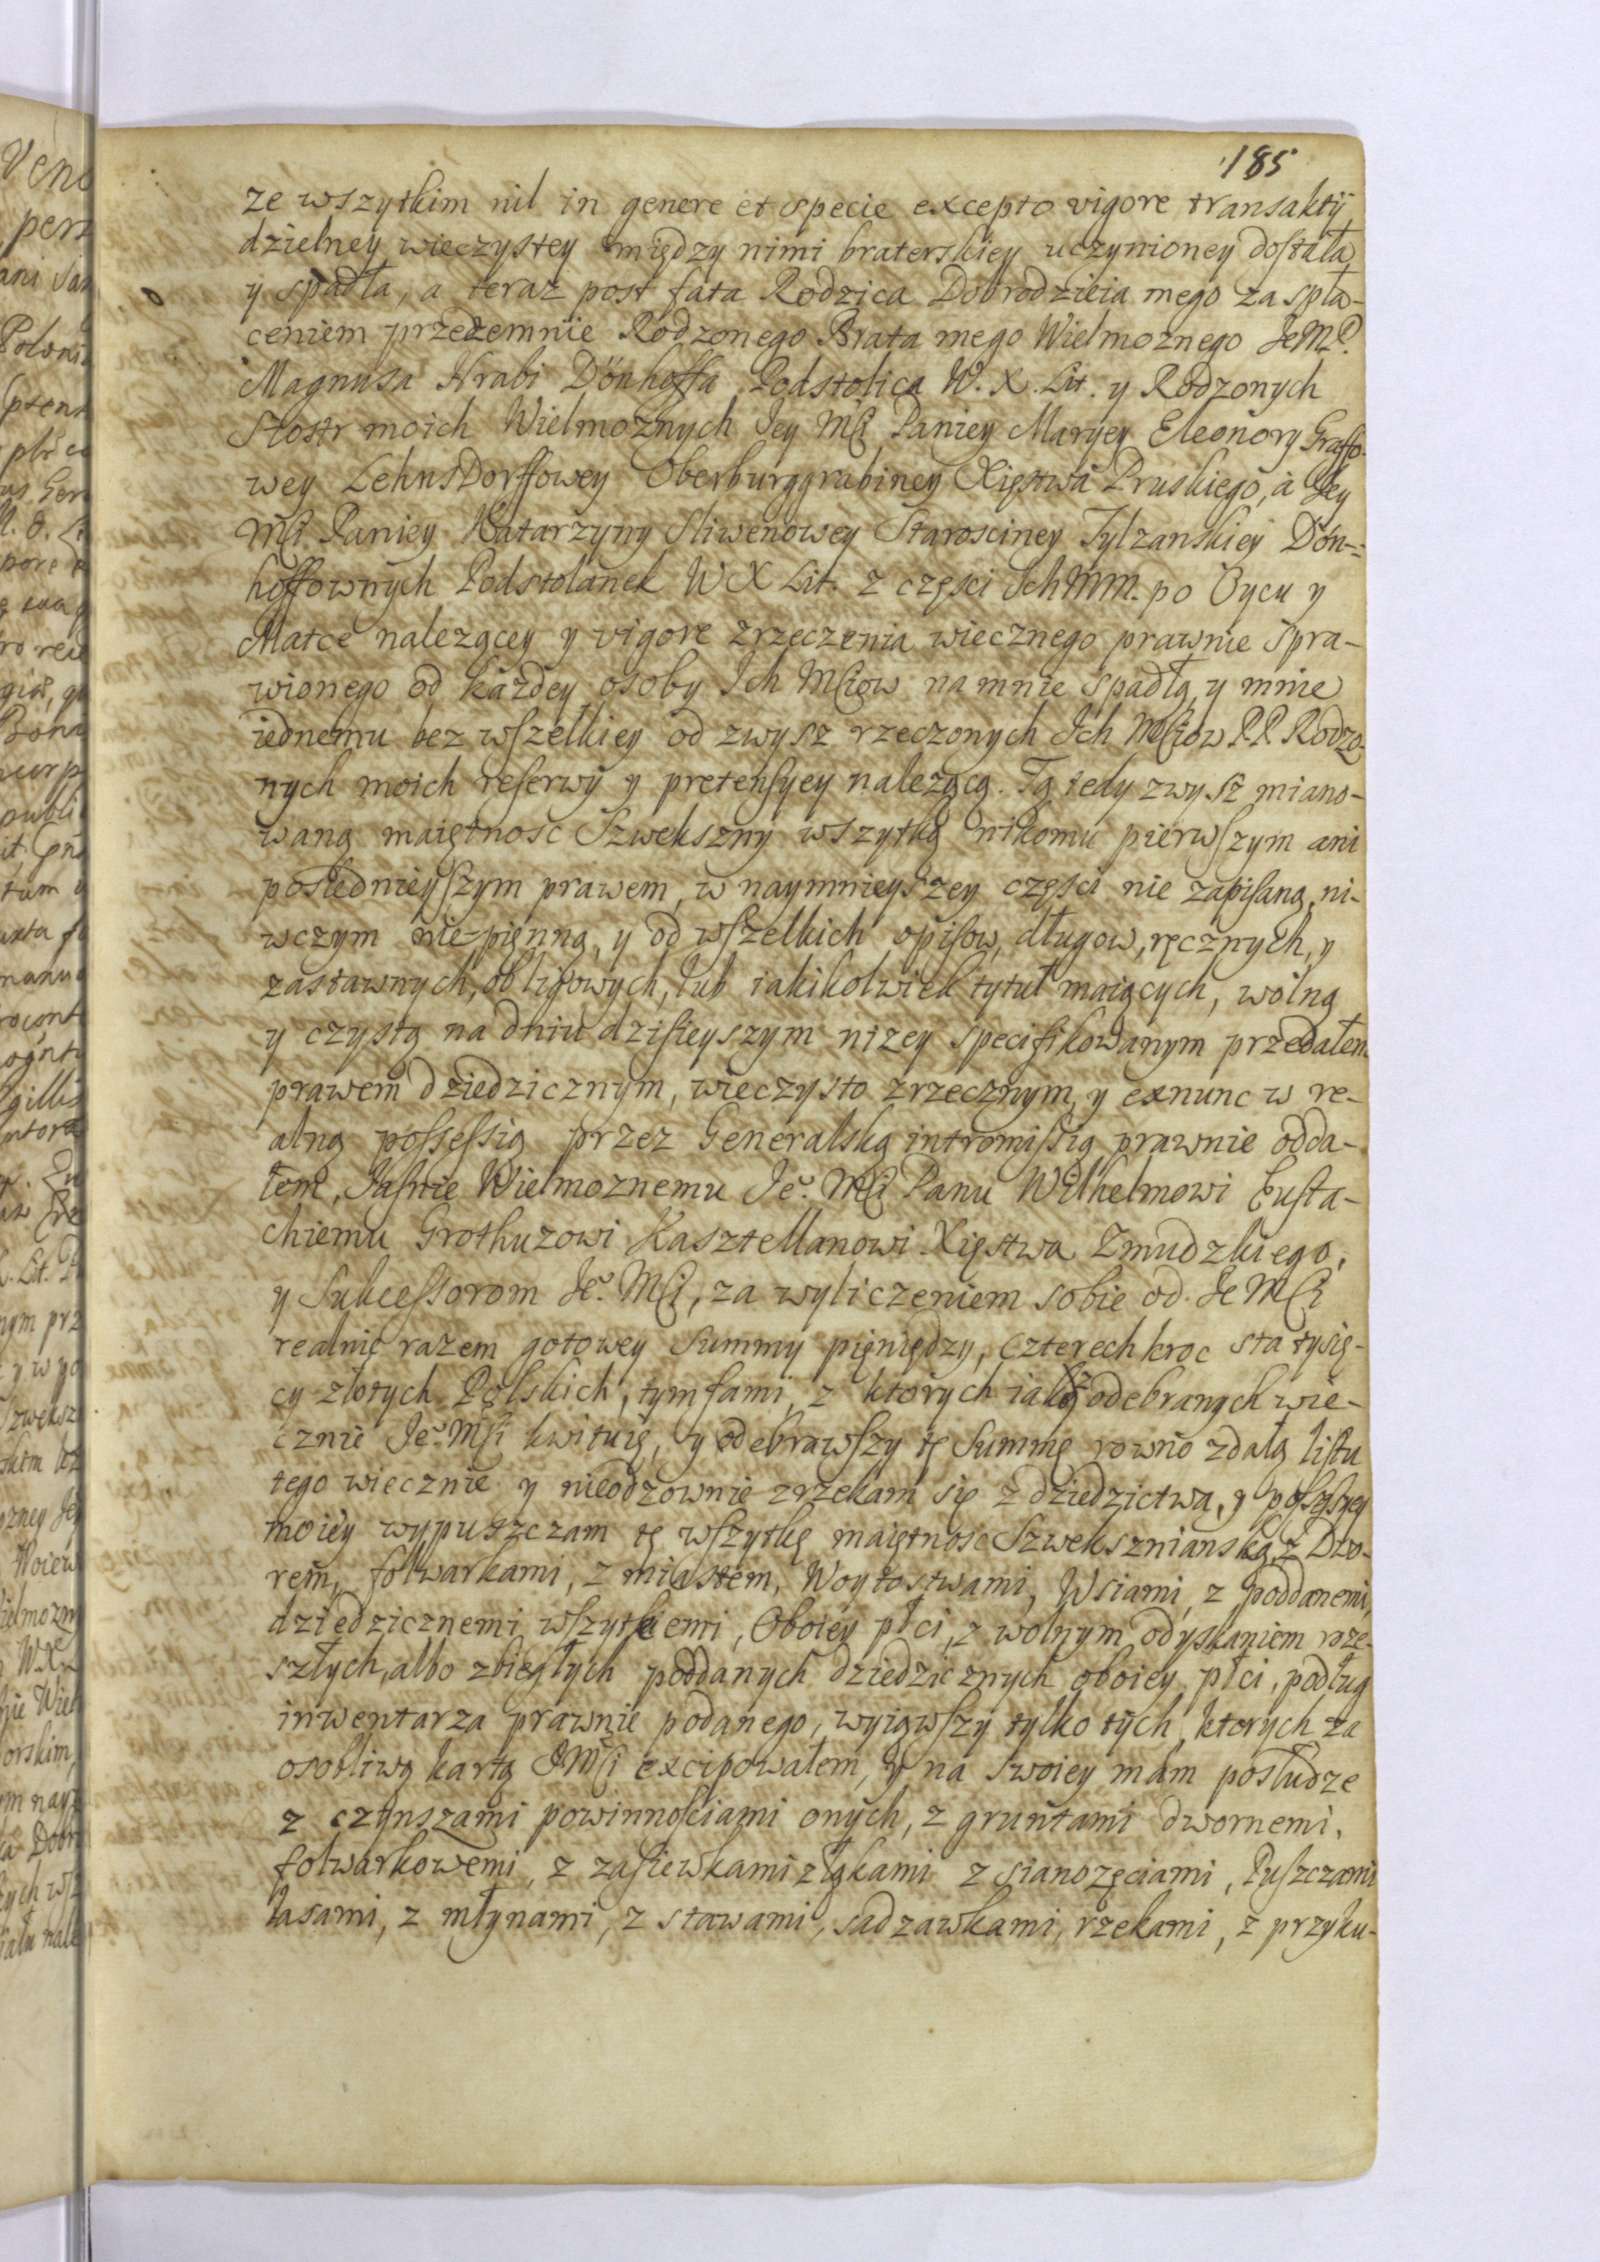 185
ze wszytkim nil in genere et specie excepto vigore transaktÿ
dzielney wieczystey między nimi braterskiey uczynioney dostała
y spadła, a teraz post fata Rodzica Dobrodzieia mego za spła-
ceniem przezemnie Rodzonego Brata mego Wielmoznego JeMP.
Magnusa Hrabi Dönhoffa Podstolica W. X. Lit. y Rodzonych
Siostr moich Wielmoznych Jey Mści Paniey Maryey Eleonory Graffo-
wey LehnsDorffowey Oberburggrabiney Xięstwa Pruskiego, à Jey
Mści Paniey Katarzyny Sliwenowey Starosciney Tylzanskiey Dön-
hoffownych Podstolanek W X Lit. z części IchMM. po Oycu y
Matce nalezącey y vigore zrzeczenia wiecznego prawnie spra-
wionego od każdey osoby Ich Mściow na mnie spadłą y mnie
iednemu bez wszelkiey od zwysz rzeczonych Ich Mściow P.P. Rodzo-
nych moich reserwÿ y pretensyey nalezącą. Tą tedy zwysz miano-
waną maiętnosc Szwekszny wszytką nikomu pierwszym ani
posledniejszym prawem, w naymnieyszey części nie zapisaną, ni-
wczym nie-pięnną, y od wszelkich opisow, długow, ręcznych, y
zastawnych, obligowych, lub iakikolwiek tytuł maiących, wolną
y czystą na dniu dzisieyszym nizey specifikowanym przedałem
prawem dziedzicznym, wieczysto zrzecznym, y exnunc w re-
alną possessią przez Generalską intromissią prawnie odda-
łem, Jasnie Wielmoznemu Je. Mści Panu Wilhelmowi Eusta-
chiemu Grothuzowi Kasztellanowi Xięstwa Zmudzkiego,
y Sukcessorom Je. Mści, za wyliczeniem sobie od Je Mści
realnie razem gotowey Summy pięniędzy, czterechkroc sta tysię-
cy złotych Polskich, tymfami, z ktorych iako odebranych wie-
cznie Je. Mści kwituię, y odebrawszy tę Summę rowno zdatą listu
tego wiecznie y nieodzownie zrzekam się z dziedzictwa, y possessyey
moiey wypuszczam tę wszytkę maiętnosc Szweksznianską z Dwo-
rem, folwarkami, z miastem, Woytostwami, Wsiami, z poddanemi,
dziedzicznemi wszytkiemi, Oboiey płci, z wolnym odyskaniem roze-
szłych, albo zbiegłych poddanych dziedzicznych oboiey płci, podług
inwentarza prawnie podanego, wyiąwszy tylko tych, ktorych za
osobliwą kartą JMści excipowałem, y na swoiey mam posłudze
z czynszami powinnosciami onych, z gruntami dwornemi,
folwarkowemi, z zasiewkami z łąkami z sianozęciami, Puszczami
lasami, z młynami, z stawami, sadzawkami, rzekami, z przyku-